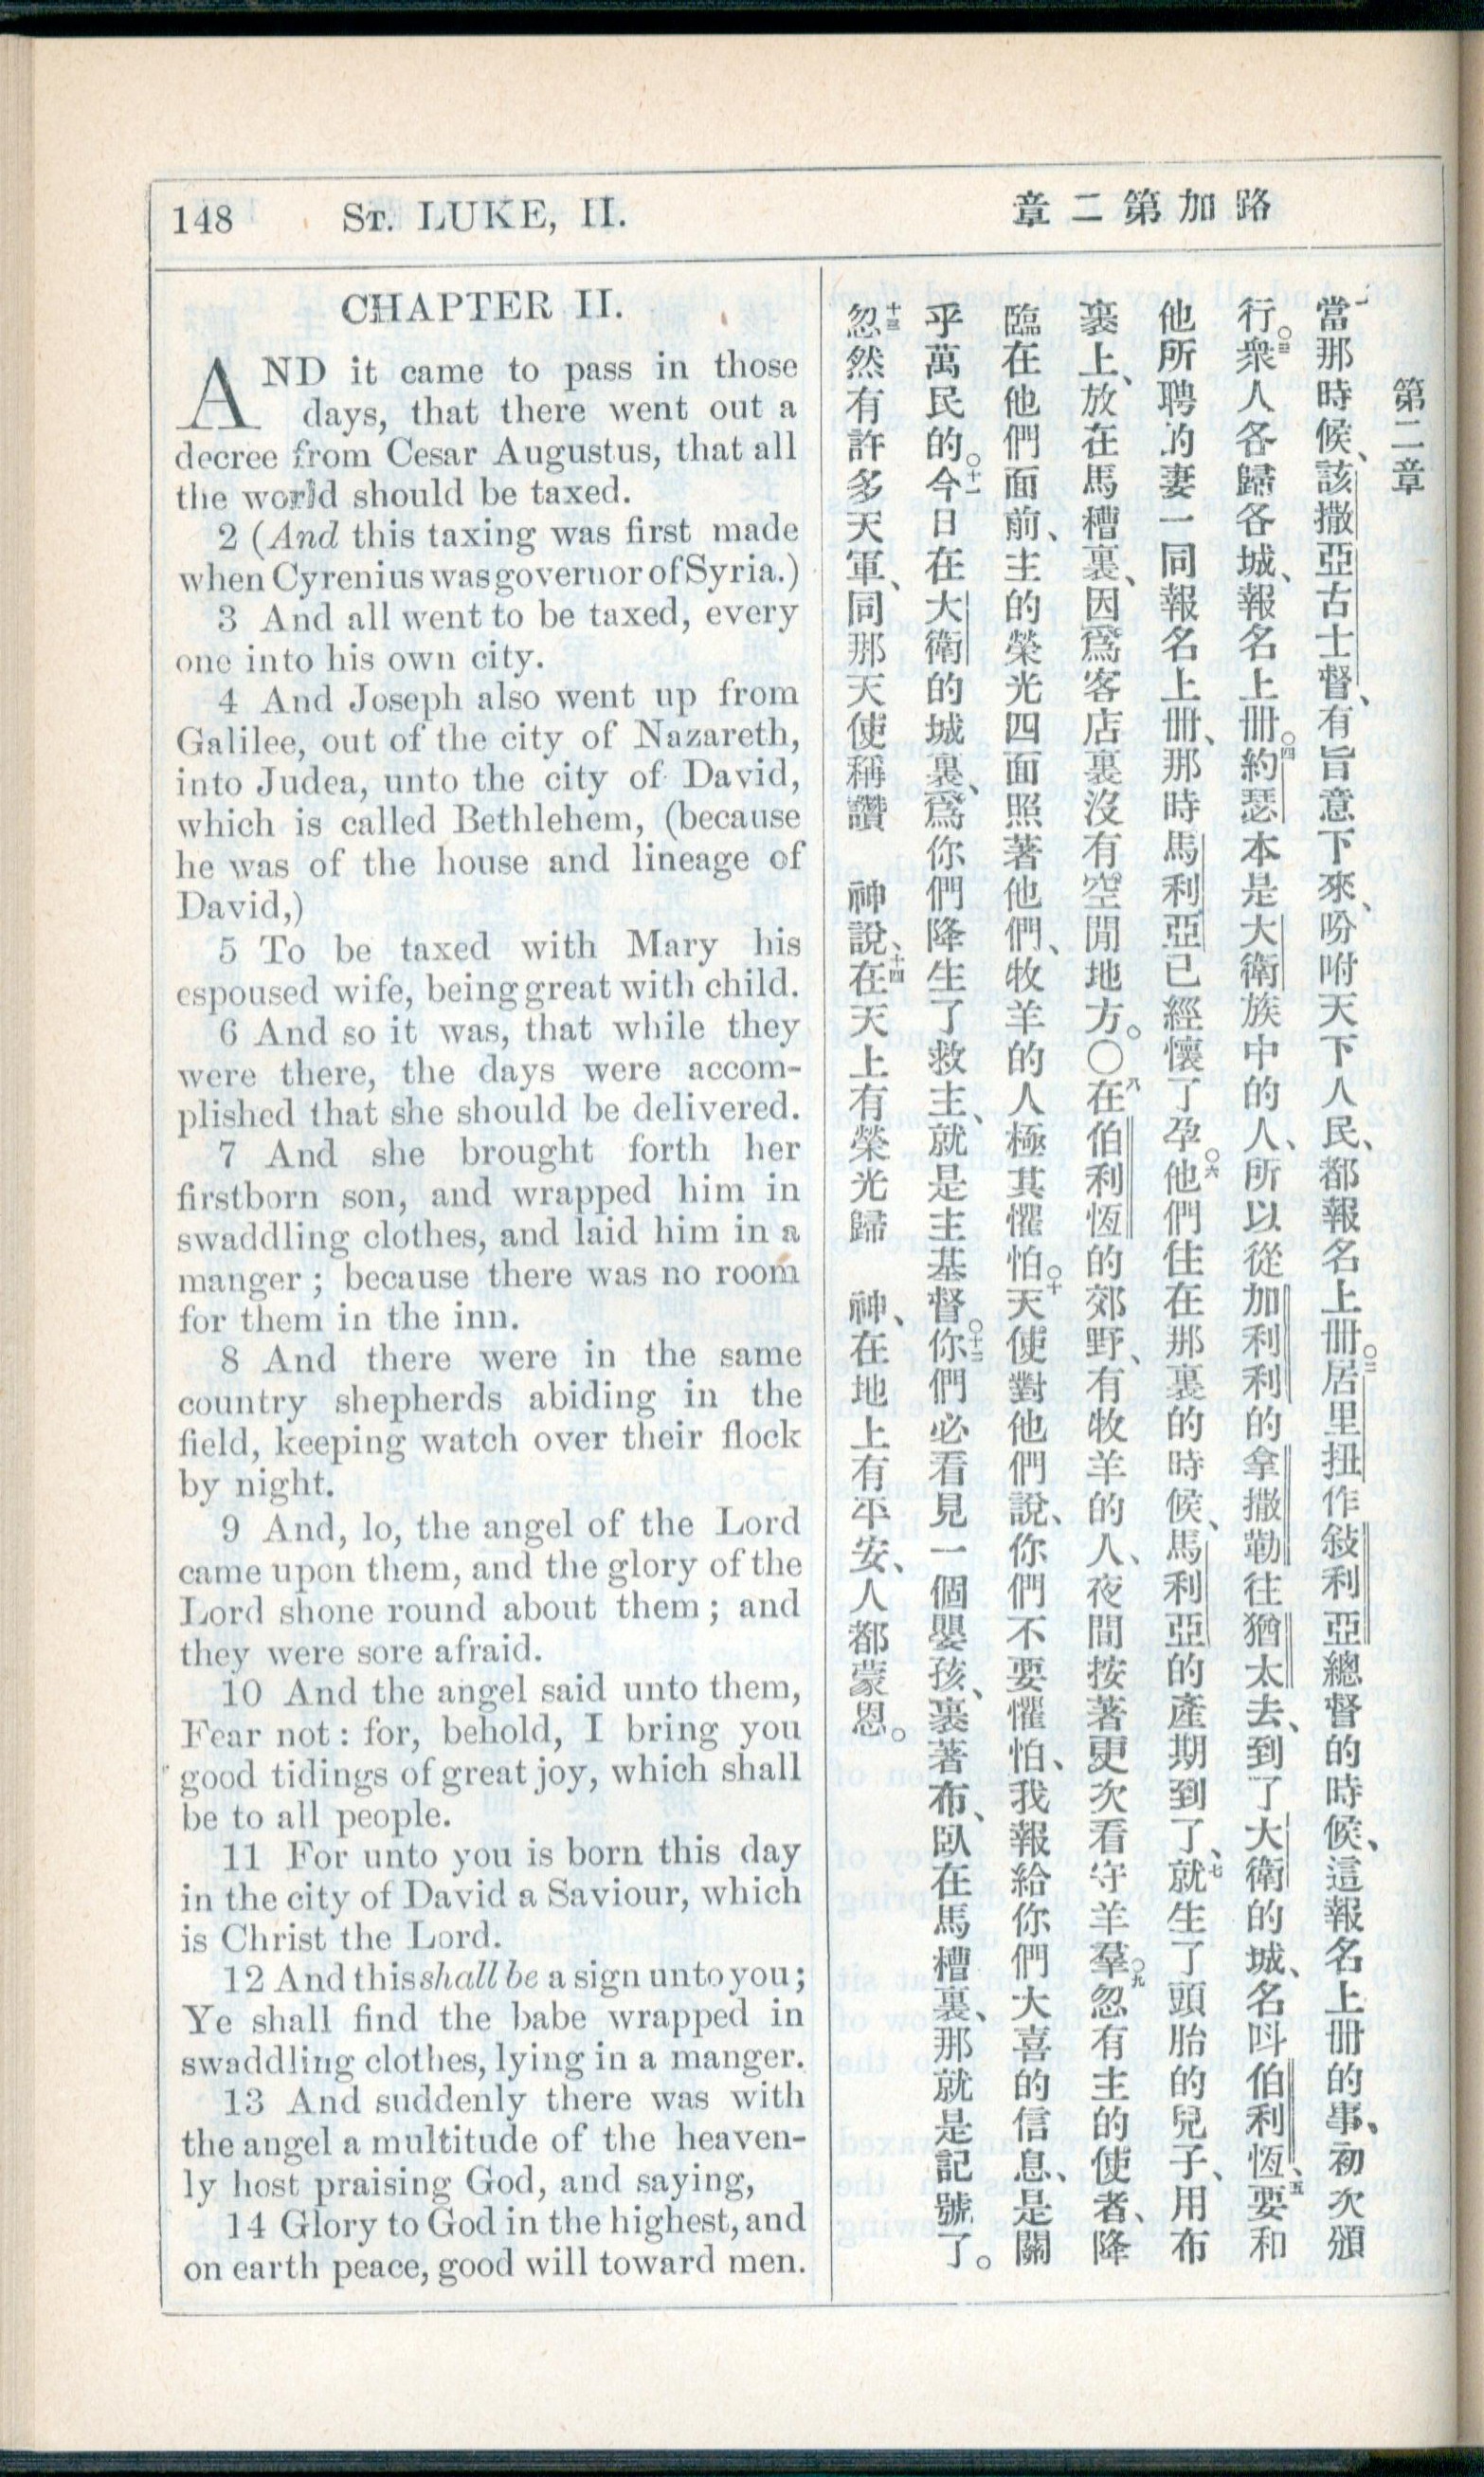 148 ST. LUKE, II.
路加第二章
CHAPTER II.
AND it came to pass in those
days, that there went out a
decree from Cesar Augustus, that all
the world should be taxed.
2 (And this taxing was first made
when Cyrenius was governor of Syria.)
3 And all went to be taxed, every
one into his own city.
4 And Joseph also went up from
Galilee, out of the city of Nazareth,
into Judea, unto the city of David,
which is called Bethlehem, (because
he was of the house and lineage of
David,)
5 To be taxed with Mary his
espoused wife, being great with child.
6 And so it was, that while they
were there, the days were accom-
plished that she should be delivered.
7 And she brought forth her
firstborn son, and wrapped him in
swaddling clothes, and laid him in a
manger; because there was no room
for them in the inn.
8 And there were in the same
country shepherds abiding in the
field, keeping watch over their flock
by night.
9 And, lo, the angel of the Lord
came upon them, and the glory of the
Lord shone round about them; and
they were sore afraid.
10 And the angel said unto them,
Fear not: for, behold, I bring you
good tidings of great joy, which shall
be to all people.
11 For unto you is born this day
in the city of David a Saviour, which
is Christ the Lord.
12 And this shall be a sign unto you;
Ye shall find the babe wrapped in
swaddling clothes, lying in a manger.
13 And suddenly there was with
the angel a multitude of the heaven-
ly host praising God, and saying,
14 Glory to God in the highest, and
on earth peace, good will toward men.
第二章
一當那時候、該撒亞古士督、有旨意下來、吩咐天下人民、都報名上冊。二居里扭作敍利亞總督的時候、這報名上冊的事、初次頒
行。三衆人各歸各城、報名上冊。四約瑟本是大衛族中的人、所以從加利利的拿撒勒往猶太去、到了大衛的城、名呌伯利恆、五要和
他所聘的妻一同報名上冊、那時馬利亞已經懷了孕。六他們住在那裏的時候、馬利亞的產期到了、七就生了頭胎的兒子、用布
裹上、放在馬槽裏、因爲客店裏沒有空閒地方。〇八在伯利恆的郊野、有牧羊的人、夜間按著更次看守羊羣。九忽有主的使者、降
臨在他們面前、主的榮光四面照著他們、牧羊的人極其懼怕。十天使對他們說、你們不要懼怕、我報給你們大喜的信息、是關
乎萬民的。十一今日在大衛的城裏、爲你們降生了救主、就是主基督。十二你們必看見一個嬰孩、裹著布、臥在馬槽裏、那就是記號了。
十三忽然有許多天軍、同那天使稱讚 神說、十四在天上有榮光歸 神、在地上有平安、人都蒙恩。